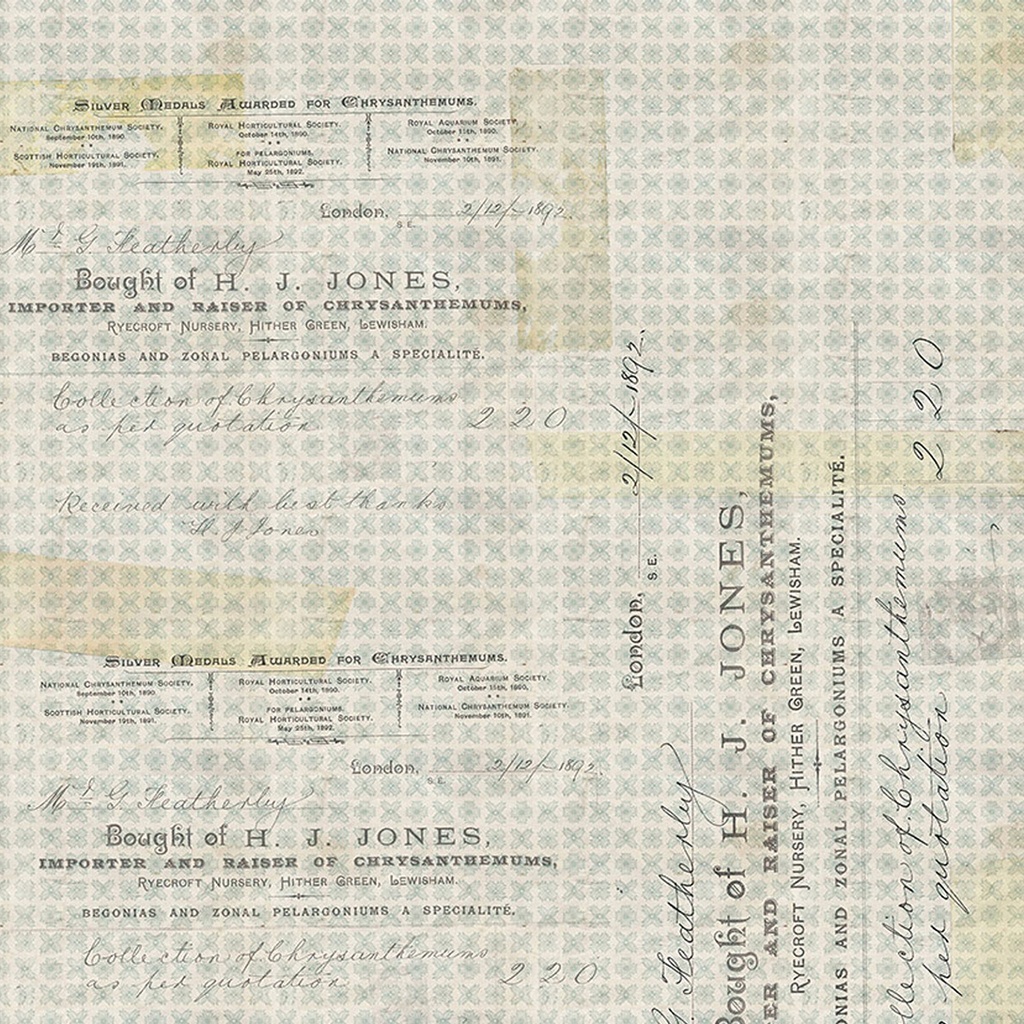 SILVER MEDALS AWARDED FOR CHRYSANTHEMUMS.
NATIONAL CHRYSANTHEMUM SOCIETY,
September 10th, 1890.
SCOTTISH HORTICULTURAL SOCIETY,
November 19th, 1891.
ROYAL HORTICULTURAL SOCIETY.
October 14th, 1890.
FOR PELARGONIUMS.
ROYAL HORTICULTURAL SOCIETY.
May 25th, 1892.
ROYAL AQUARIUM SOCIETY,
October 15th, 1890.
NATIONAL CHRYSANTHEMUM SOCIETY.
November 10th, 1891.
London, 2/12/-1892.
S.E.
Mr G Heatherley
Bought of H. J. JONES,
IMPORTER AND RAISER OF CHRYSANTHEMUMS,
RYECROFT NURSERY, HITHER GREEN, LEWISHAM.
BEGONIAS AND ZONAL PELARGONIUMS A SPECIALITÉ.
Collection of Chrysanthemums
as per quotation 2 2 0
Received with best thanks
H. J. Jones
SILVER MEDALS AWARDED FOR CHRYSANTHEMUMS.
NATIONAL CHRYSANTHEMUM SOCIETY,
September 10th, 1890.
SCOTTISH HORTICULTURAL SOCIETY,
November 19th, 1891.
ROYAL HORTICULTURAL SOCIETY.
October 14th, 1890.
FOR PELARGONIUMS.
ROYAL HORTICULTURAL SOCIETY.
May 25th, 1892.
ROYAL AQUARIUM SOCIETY,
October 15th, 1890.
NATIONAL CHRYSANTHEMUM SOCIETY.
November 10th, 1891.
London, 2/12/-1892.
S.E.
Mr G Heatherley
Bought of H. J. JONES,
IMPORTER AND RAISER OF CHRYSANTHEMUMS,
RYECROFT NURSERY, HITHER GREEN, LEWISHAM.
BEGONIAS AND ZONAL PELARGONIUMS A SPECIALITÉ.
Collection of Chrysanthemums
as per quotation 2 2 0
London, 2/12/-1892.
S.E.
G Heatherley
Bought of H. J. JONES,
ER AND RAISER OF CHRYSANTHEMUMS,
RYECROFT NURSERY, HITHER GREEN, LEWISHAM.
ONIAS AND ZONAL PELARGONIUMS A SPECIALITÉ.
ollection of Chrysanthemums
per quotation 2 2 0